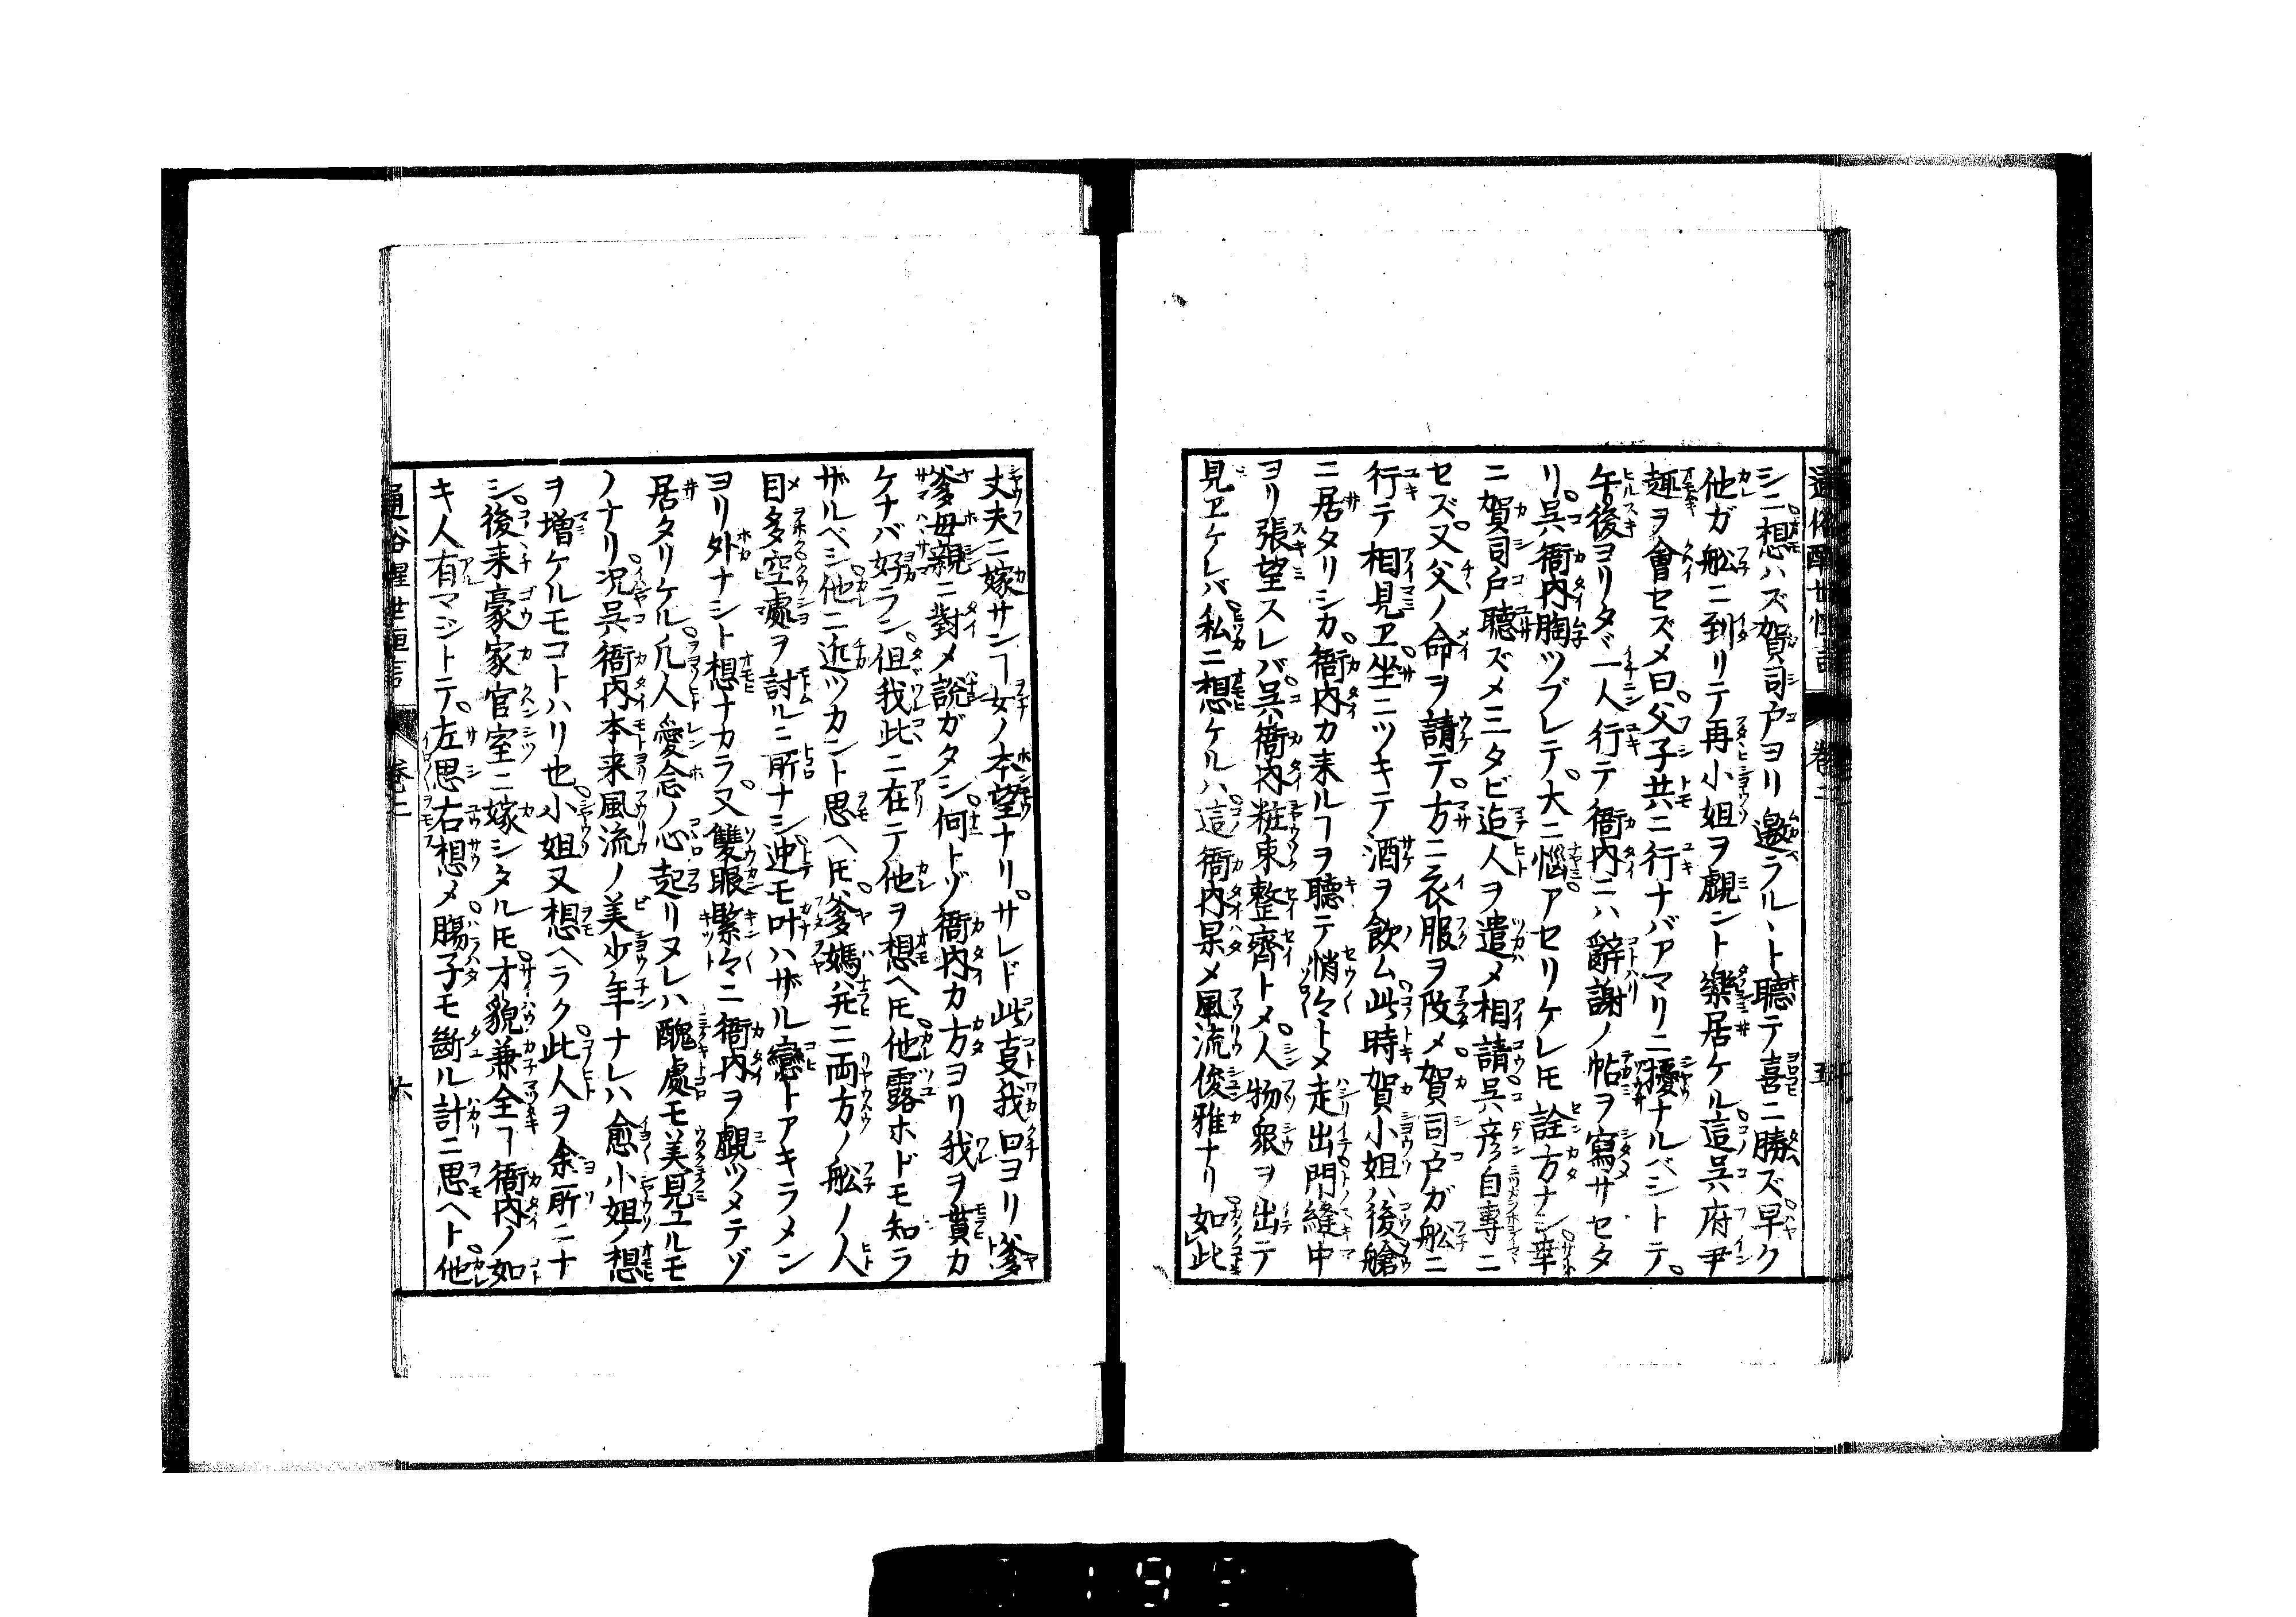 通俗醒世恒言 卷二 五
シニ。想ハズ賀司戸ヨリ邀ラルヽト聽テ喜ニ勝ズ。早ク
他ガ舩ニ到リテ再小姐ヲ覷ント樂居ケル。這呉府尹
趣ヲ會セズ〆曰。父子共ニ行ナバアマリニ擾ナルベシトテ。
午後ヨリタヾ一人行テ衙内ニハ辭謝ノ帖ヲ寫サセタ
リ。呉衙内胸ツブレテ。大ニ惱。アセリケレ𪜈詮方ナシ。幸
ニ賀司戸聽ズ〆三タビ迨人ヲ遣〆相請。呉彦自專ニ
セズ。又父ノ命ヲ請テ。方ニ衣服ヲ改〆。賀司戸ガ舩ニ
行テ相見ヱ。坐ニツキテ酒ヲ飲ム。此時賀小姐ハ後艙
ニ居タリシカ。衙内カ来ルヿヲ聽テ悄々ト〆走出。門縫中
ヨリ張望スレバ。呉衙内粧束整齊ト〆。人物衆ヲ出テ
見ヱケレバ。私ニ想ケルハ。這衙内果〆風流俊雅ナリ。如此
丈夫ニ嫁サンヿ女ノ本望ナリ。サレド此支我口ヨリ爹
爹母親ニ對〆説ガタシ。何トゾ衙内カ方ヨリ我ヲ貰カ
ケナバ好ラン。但我此ニ在テ他ヲ想ヘ𪜈。他露ホドモ知ラ
ザルベシ。他ニ近ツカント思ヘ𪜈。爹媽ハ元ニ両方ノ舩ノ人
目多。空處ヲ討ルニ所ナシ。迚モ叶ハザル戀トアキラメン
ヨリ外ナシト想ナカラ。又雙眼緊々ニ衙内ヲ覷ツメテゾ
居タリケル。凡人愛念ノ心起リヌレハ醜處モ美見ユルモ
ノナリ。况呉衙内本来風流ノ美少年ナレハ愈小姐ノ想
ヲ増ケルモコトハリ也。小姐又想ヘラク。此人ヲ余所ニナ
シ。後来豪家官室ニ嫁シタル𪜈。才貌兼全ヿ衙内ノ如
キ人有マジトテ。左思右想〆。腸子モ斷ル計ニ思ヘト。他
通俗醒世恒言 卷二 六